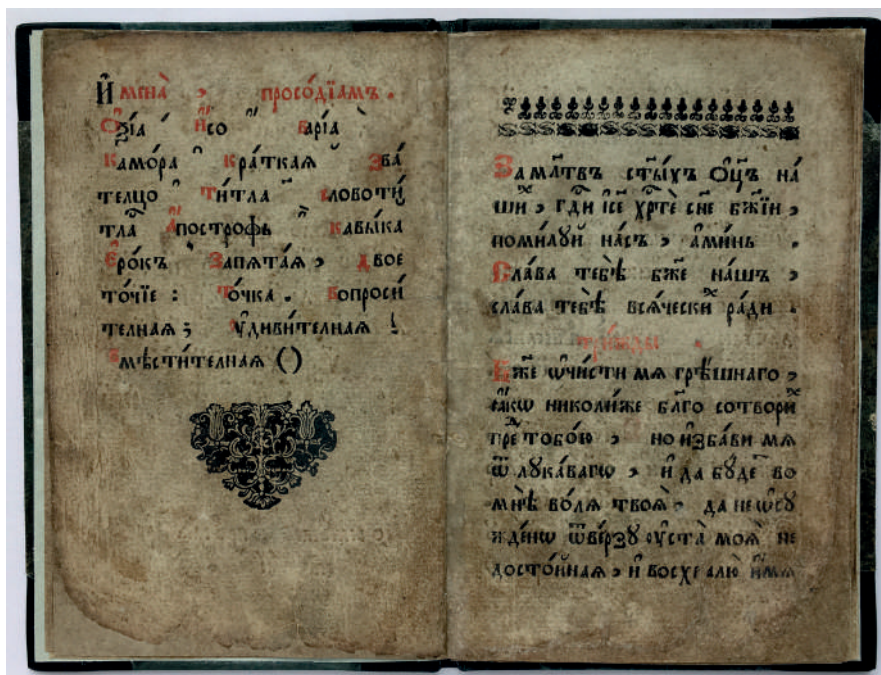 И҆мена̀ , просѡ́дїамъ .
Ѻ҆ѯі́а ́ И҆со ҆ Варі́а ̀
Камо́ра ̑ Кра́ткаѧ ̆ Зва́
телцо ҆ Ти́тла ҃ словоти́
тла А҆по́строфь Кавы́ка
Е҆ро́къ Запѧта́ѧ , двое
то́чїе : То́чка . Вопроси́
телнаѧ ; ᲂу҆диви́телнаѧ !
вмѣсти́телнаѧ ()
За мл҃твъ ст҃ы́хъ Ѻ҆ц҃ъ на́
шиⷯ , гдⷭ҇и і҆с҃е хрⷭ҇тѐ сн҃е бж҃їи ,
поми́лꙋй на́съ , а҆ми́нь .
Сла́ва тебѣ̀ бж҃е на́шъ ,
сла́ва тебѣ̀ всѧ́ческиⷯ ра́ди .
три́жды .
Бж҃е ѡ҆чи́сти мѧ грѣ́шнаго ,
ꙗ҆́кѡ николи́же бл҃го сотвориⷯ
преⷣ тобо́ю , но и҆зба́ви мѧ
ѿ лꙋка́вагѡ , и҆ да бꙋ́деⷮ во
мнѣ̀ во́лѧ твоѧ̀ , да не ѡ҆сꙋ
жде́нѡ ѿве́рзꙋ ᲂу҆ста̀ моѧ̀ не
досто́йнаѧ , и҆ восхвалю̀ и҆́мѧ